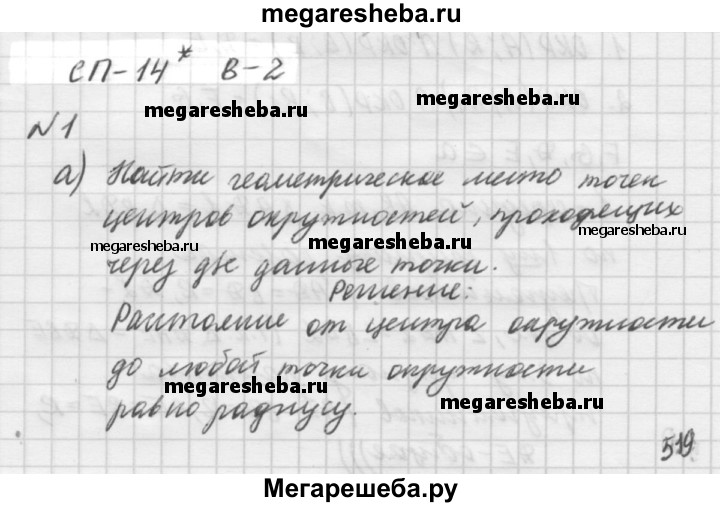 megaresheba.ru
СП-14* В-2
megaresheba.ru
№1
а) Найти геометрическое место точек
центров окружностей, проходящих
megaresheba.ru megaresheba.ru megaresheba.ru
через две данные точки.
Решение:
Расстояние от центра окружности
до любой точки окружности
megaresheba.ru megaresheba.ru
равно радиусу.
519
megaresheba.ru
Мегарешеба.ру